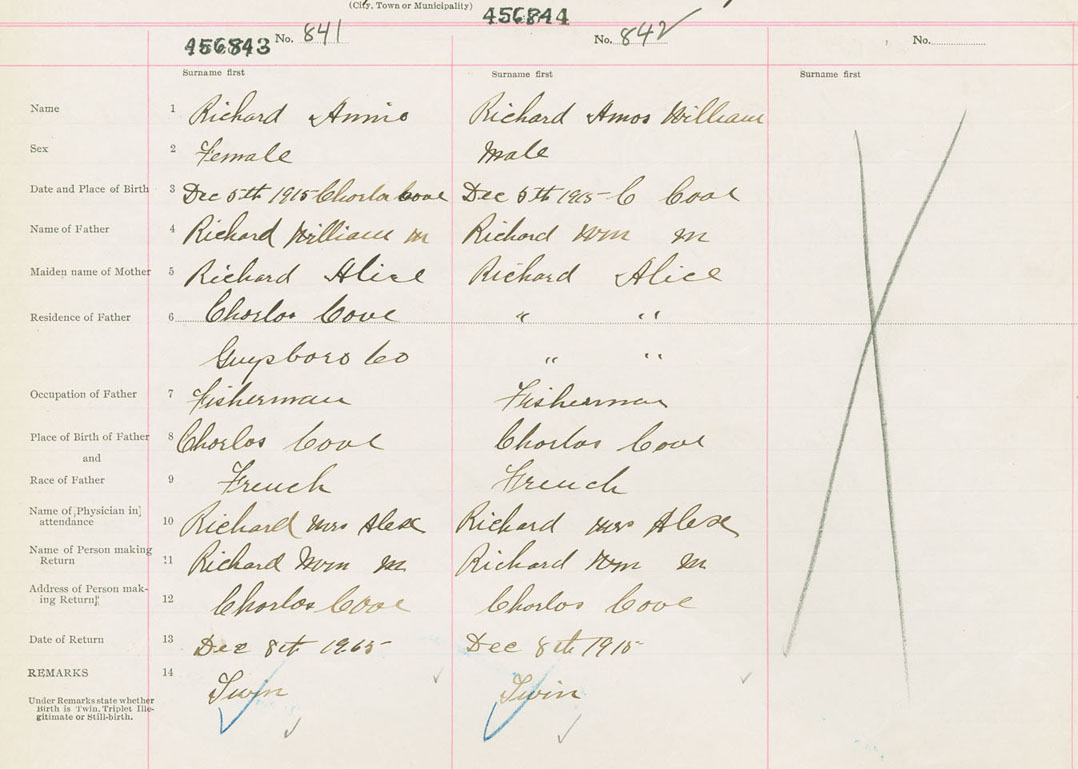 (City, Town or Municipality)
456843 No. 841 456844 No. 842 No.
Surname first Surname first Surname first
Name 1 Richard Annie Richard Amos William
Sex 2 Female Male
Date and Place of Birth 3 Dec 5th 1915 Charlos Cove Dec 5th 1915 - C Cove
Name of Father 4 Richard William M Richard Wm M
Maiden name of Mother 5 Richard Alice Richard Alice
Residence of Father 6 Charlos Cove " "
Guysboro Co " "
Occupation of Father 7 Fisherman Fisherman
Place of Birth of Father 8 Charlos Cove Charlos Cove
and
Race of Father 9 French French
Name of Physician in
attendance 10 Richard Mrs Alex Richard Mrs Alex
Name of Person making
Return 11 Richard Wm M Richard Wm M
Address of Person mak-
ing Return 12 Charlos Cove Charlos Cove
Date of Return 13 Dec 8th 1915 Dec 8th 1915
REMARKS 14 Twin Twin
Under Remarks state whether
Birth is Twin, Triplet Ille-
gitimate or Still-birth.